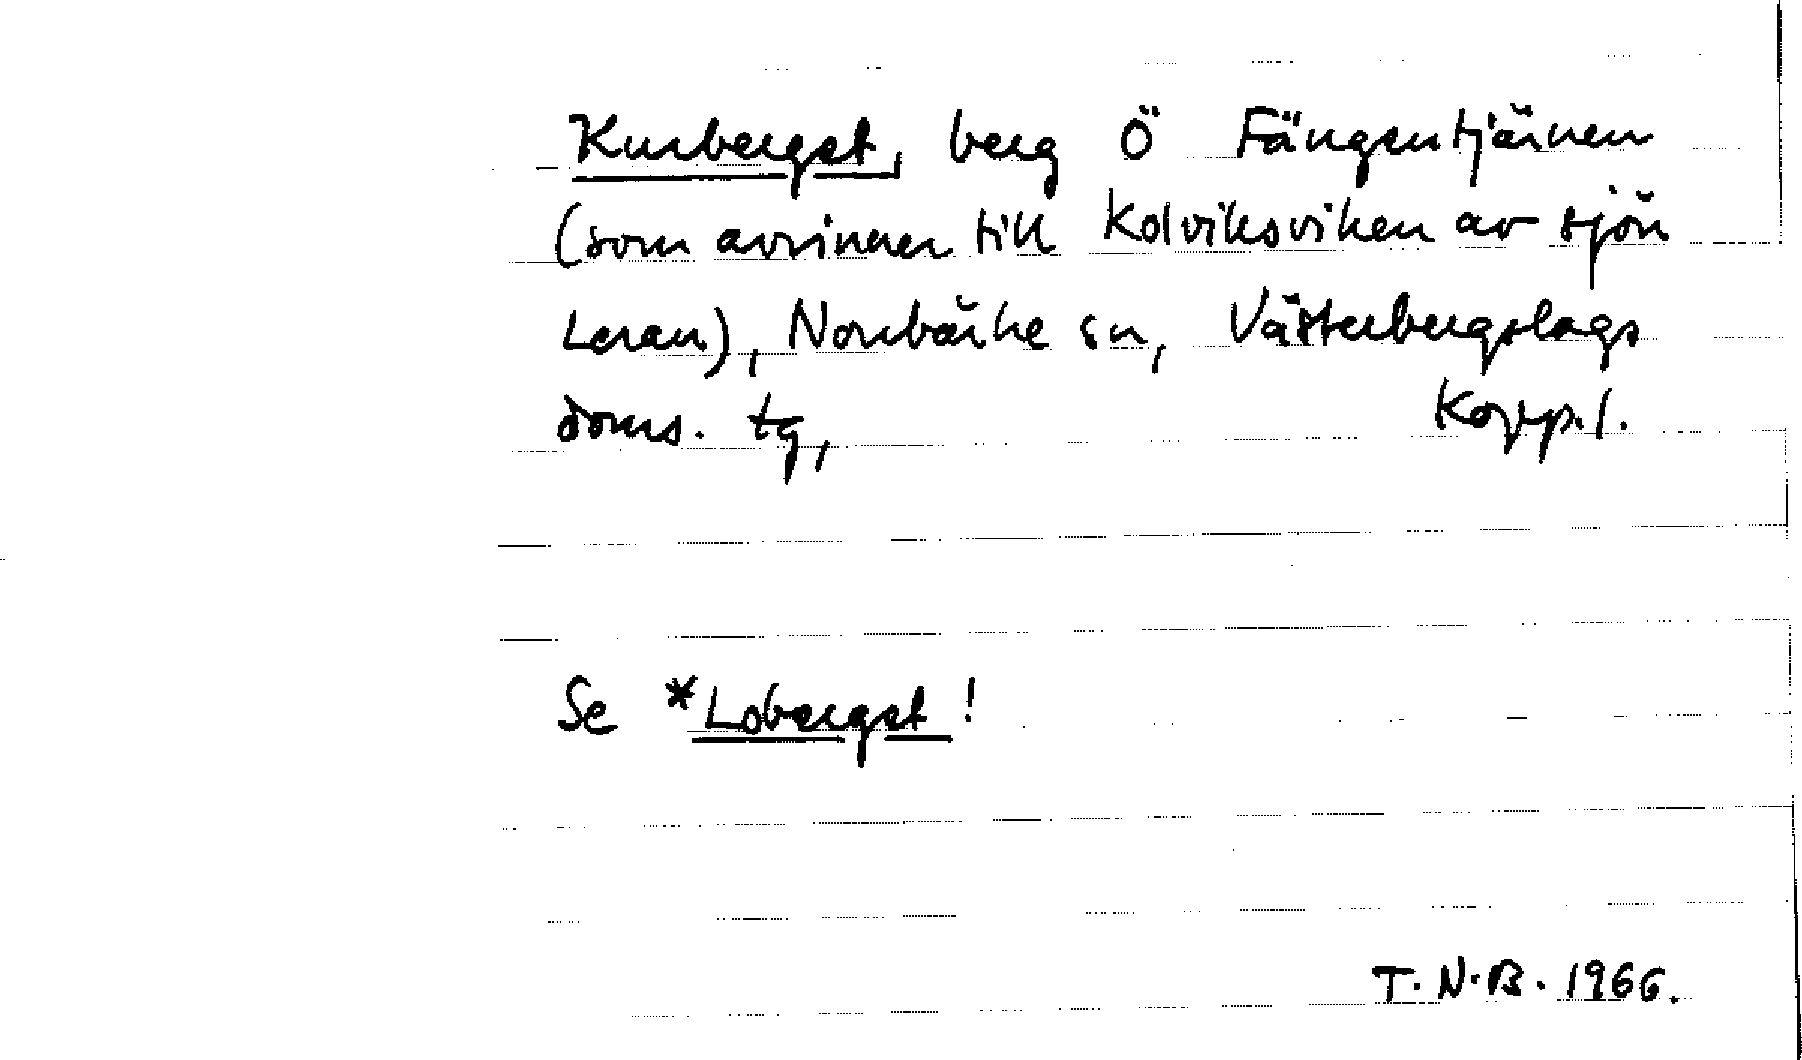 Kursberget, berg Ö Fängsentjärnen
(som avrinner till Kolviksviken av sjön
Leran), Norrbärke sn, Västerbergslags
doms. tg, Kopp. l.
Se *Loberget!
T. N. B. 1966.